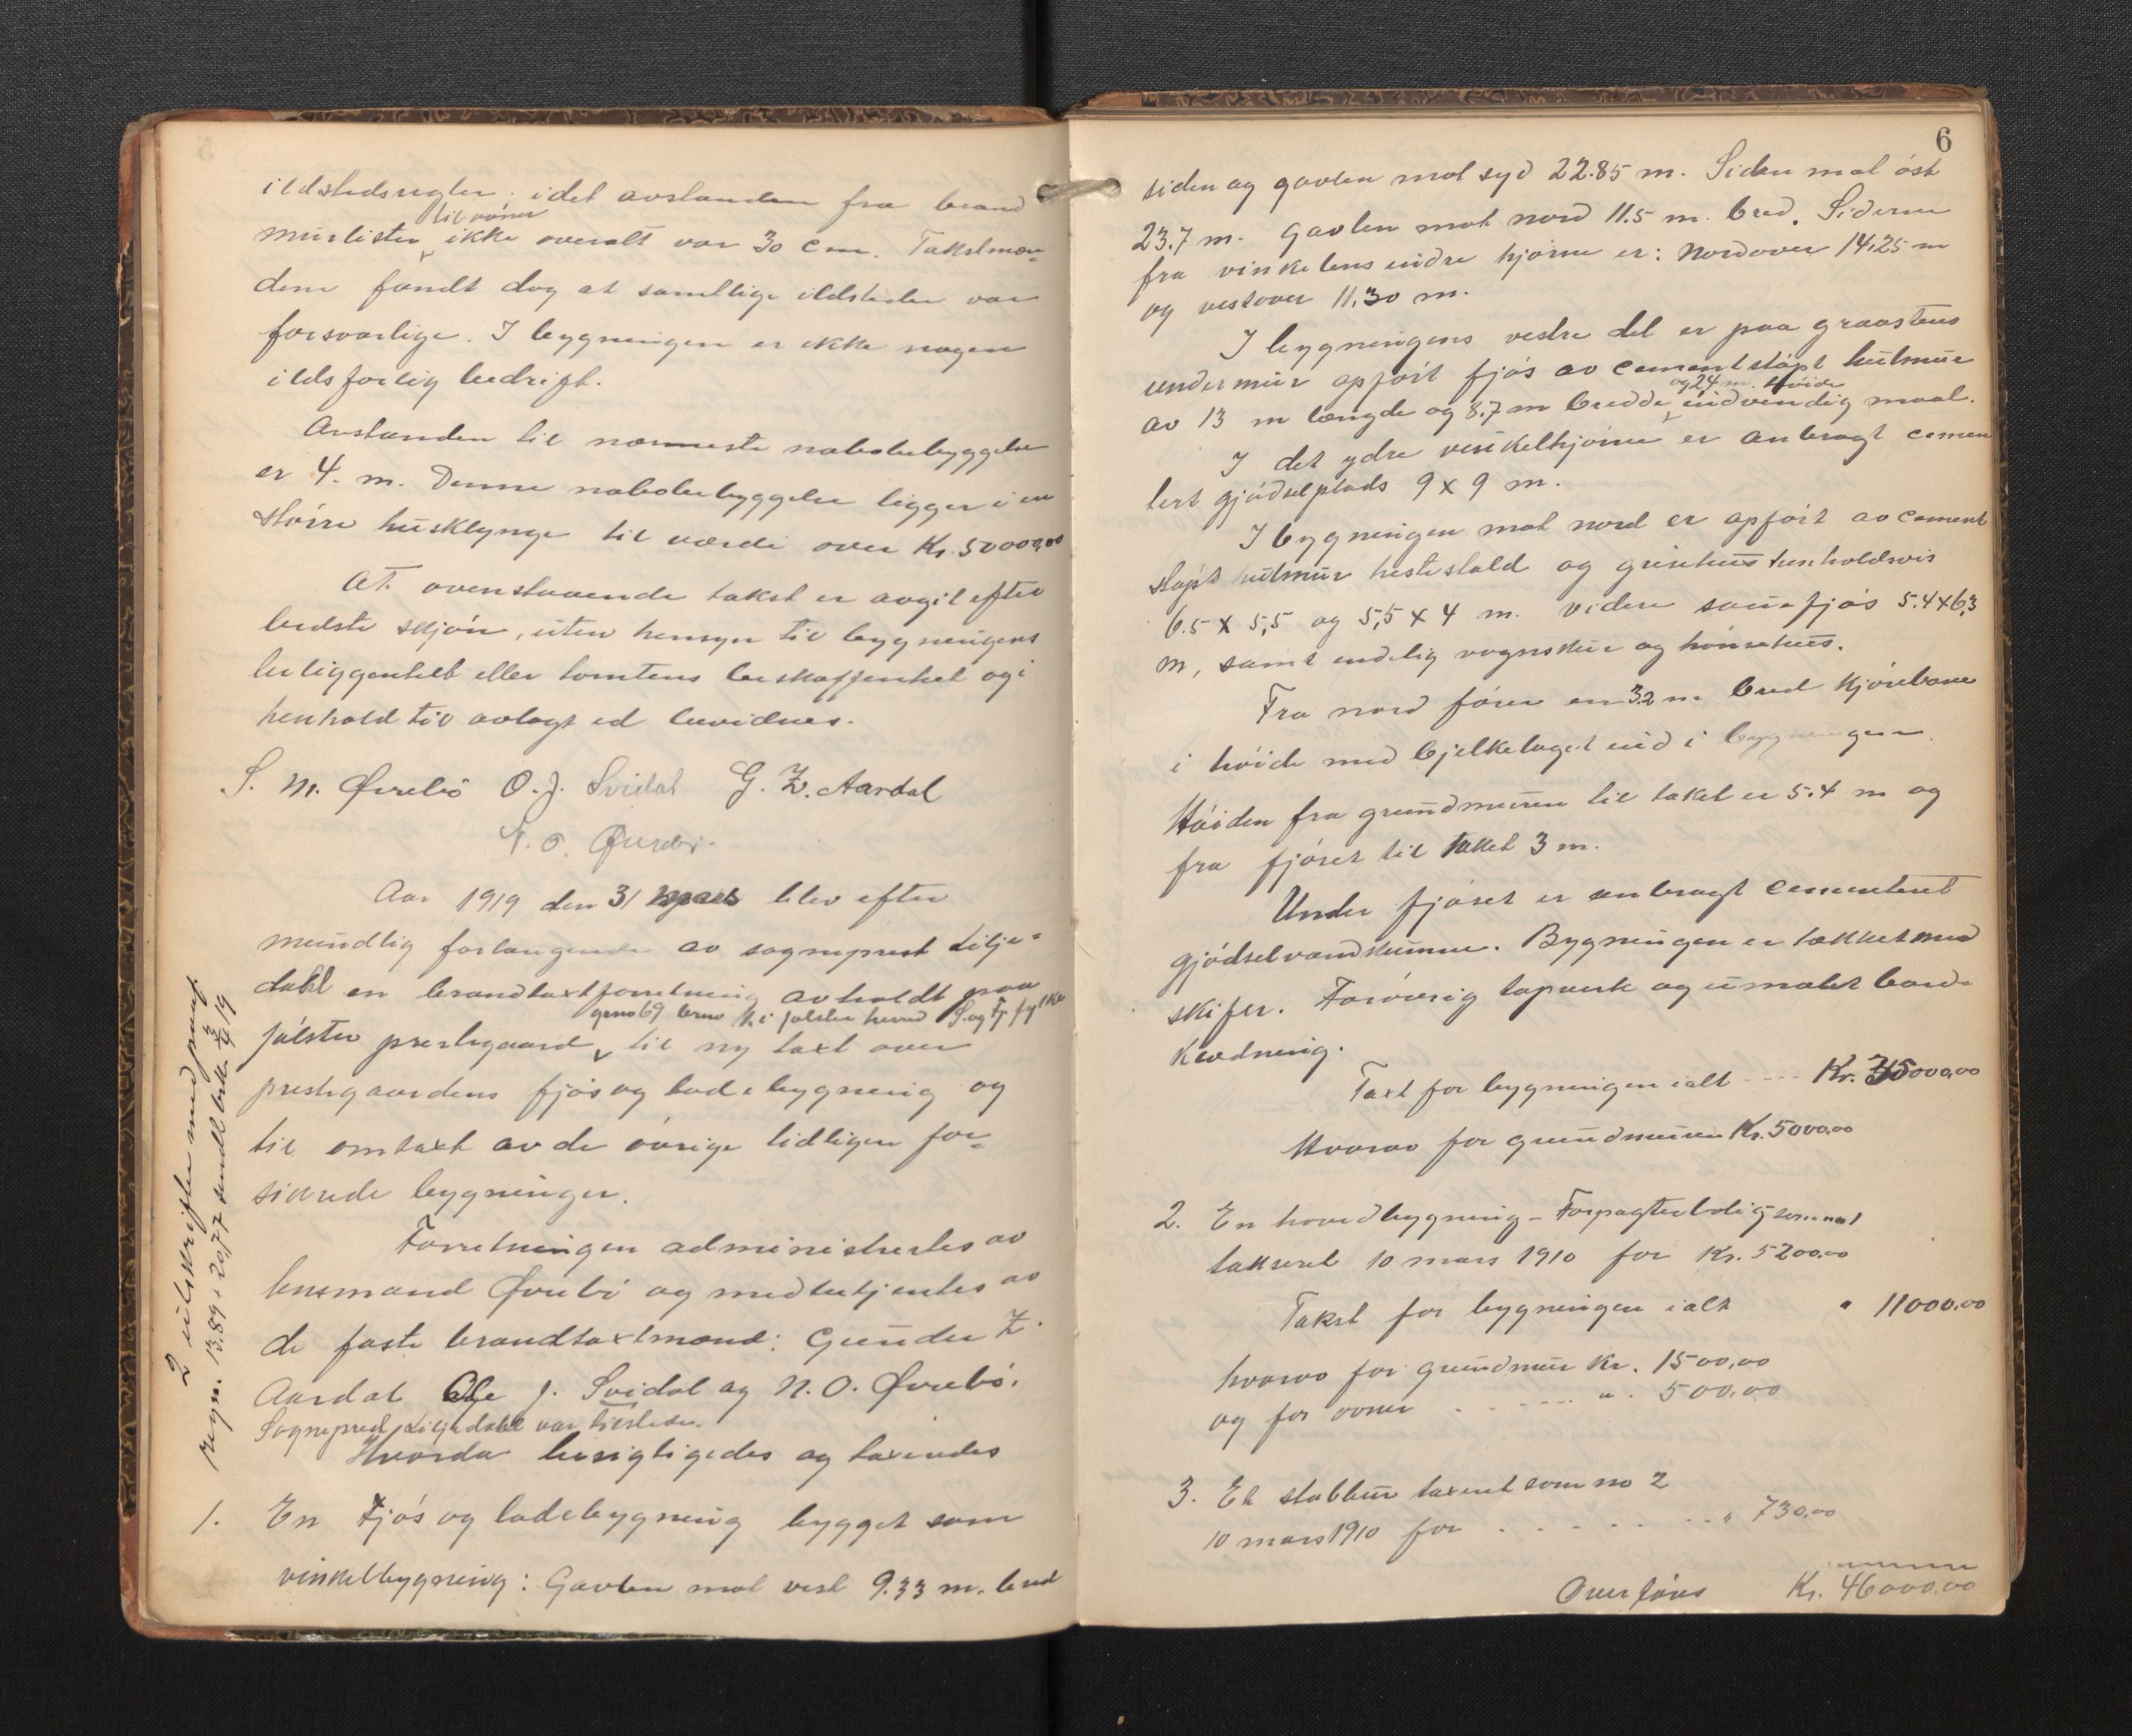 ildstedsregler. idet avstanden fra brand
murlister til ovner ikke overalt var 30 cm. Takstmæn-
dene fandt dog at samtlige ildsteder var
forsvarlige. I bygningen er ikke nogen
ildsfarlig bedrift.
Avstanden til nærmeste nabobebyggelse
er 4. m. Denne nabobebyggelse ligger i en
større husklynge til værdi over Kr. 50000,00
At ovenstaaende takst er avgit efter
bedste skjøn, uten hensyn til bygningens
beliggenhet eller tomtens beskaffenhet og i
henhold til avlagt ed bevidnes.
S. M. Øvrebö O. J. Svidal G. Z. Aardal
N. O. Øvrebö.
Aar 1919 den 31 mars blev efter
mundlig forlangende av sogneprest Lilje-
dahl en brandtaxtforretning avholdt paa
grno 69 brno 1. i Jølster herred S. og Fj. fylke
Jølster prestegaard, til ny taxt over
prestegaardens fjøs og ladebygning og
til omtaxt av de øvrige tidligere for-
sikrede bygninger.
Forretningen administrertes av
lensmand Øvrebö og medbetjentes av
de faste brandtaxtmænd: Gunder Z.
Aardal Ole J. Svidal og N. O. Øvrebö.
Sogneprest Liljedahl var tilstede.
Hvorda besigtigedes og taxertes
1. En Fjøs og ladebygning bygget som
vinkelbygning: Gavlen mot vest 9.33 m. bred
2 utskrifter med
regn. 13.89 + 20,77 sendt
6
siden og gavlen mot syd 22.85 m. Siden mot øst
23.7 m. Gavlen mot nord 11.5 m. bred. Siderne
fra vinkelens indre hjørne er: Nordover 14,25 m
og vestover 11,30 m.
I bygningens vestre del er paa graastens
undermur opført fjøs av cementstøpt hulmur
av 13 m længde og 8.7 m bredde og 24 m. høide indvendig maal.
I det ydre vinkelhjørne er anbragt cemen
tert gjødselplads 9 x 9 m.
I bygningen mot nord er opført av cement
støpt hulmur hestestald og grisehus henholdsvis
6.5 x 5,5 og 5,5 x 4 m. videre sauefjøs 5.4 x 6,3
m, samt endelig vognskur og hønsehus.
Fra nord fører en 3.2 m bred kjørebane
i høide med bjelkelaget ind i bygningen.
Høiden fra grundmuren til taket er 5.4 m og
fra fjøset til taket 3 m.
Under fjøset er anbragt cementert
gjødselvandskumme. Bygningen er tækket med
skifer. Forøvrig tapverk og umalet bord-
klædning.
Taxt for bygningen ialt - - - Kr. 35000,00
Hvorav for grundmuren Kr. 5000,00
2. En hovedbygning - Forpagterbolig
takseret 10 mars 1910 for Kr. 5200.00
Takst for bygningen ialt " 11000,00
hvorav for grundmur Kr. 1500,00
og for ovner . . . . . . " . 500,00
3. Et stabbur taxert som no 2
10 mars 1910 for . . . . . . . " 730,00
Overføres Kr. 46000.00